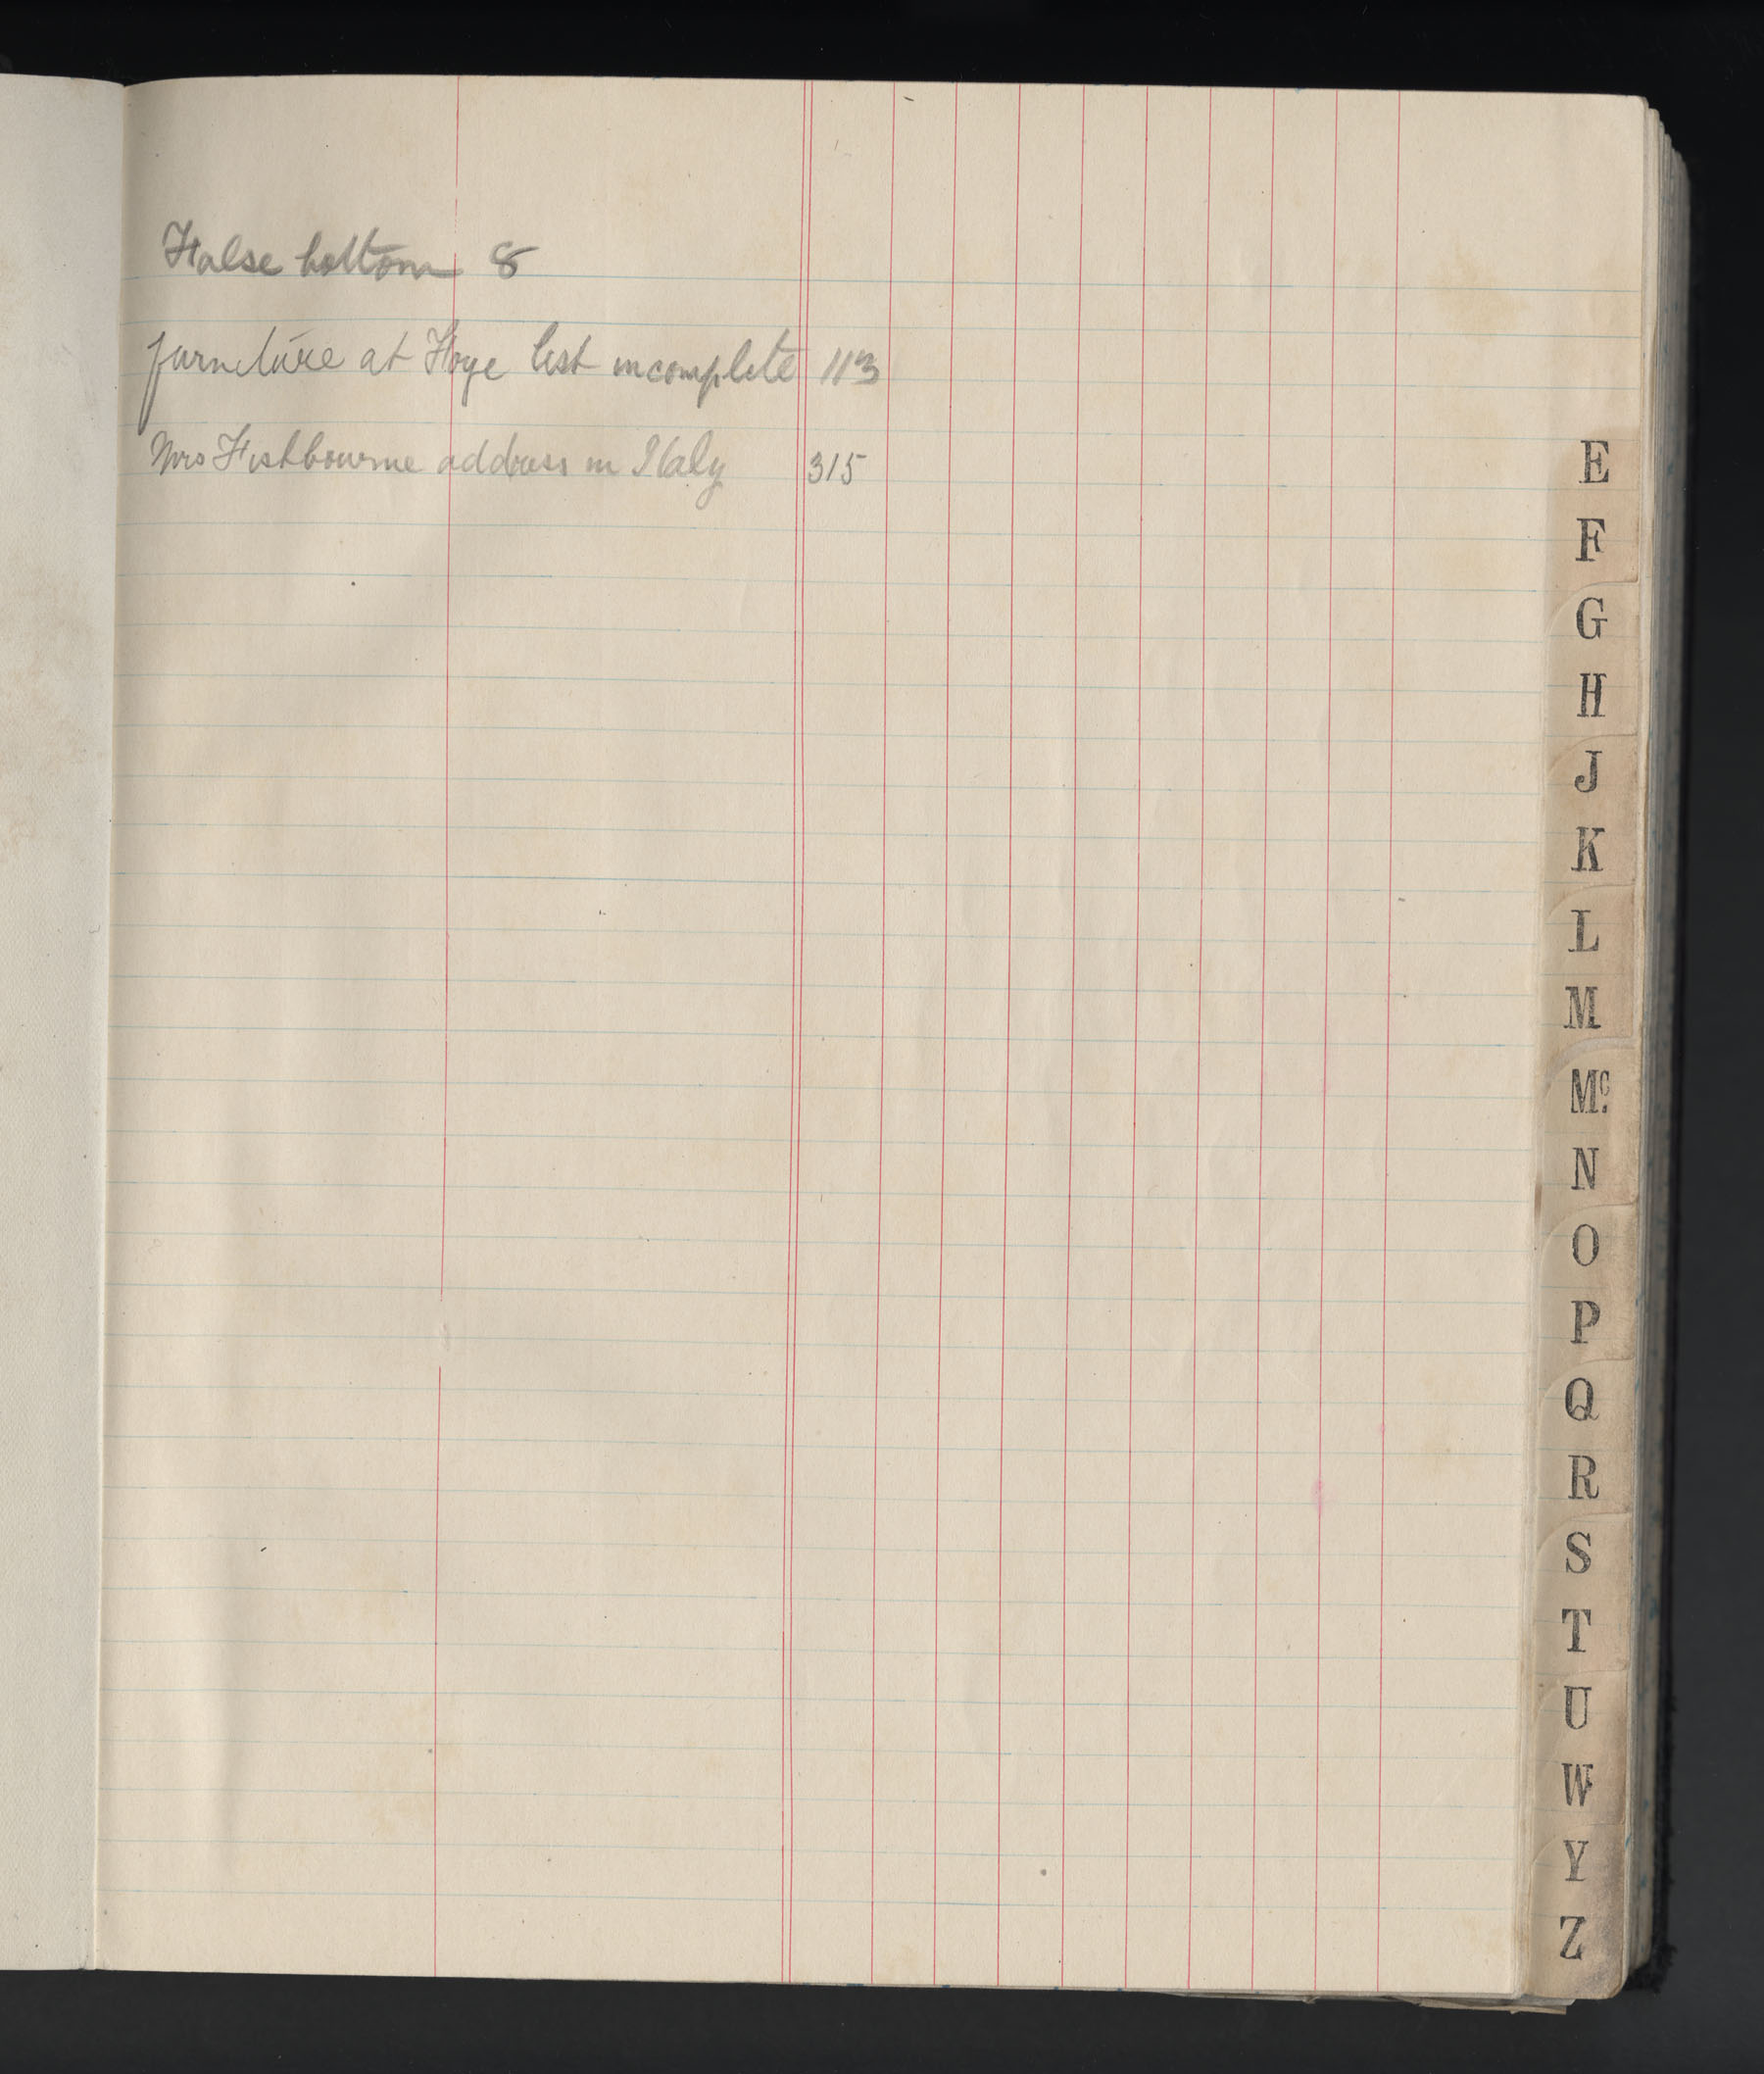 False bottom 8
furniture at Foye list incomplete 113
Mrs Fishbourne address in Italy 315
E
F
G
H
J
K
L
M
Mc.
N
O
P
Q
R
S
T
U
W
Y
Z